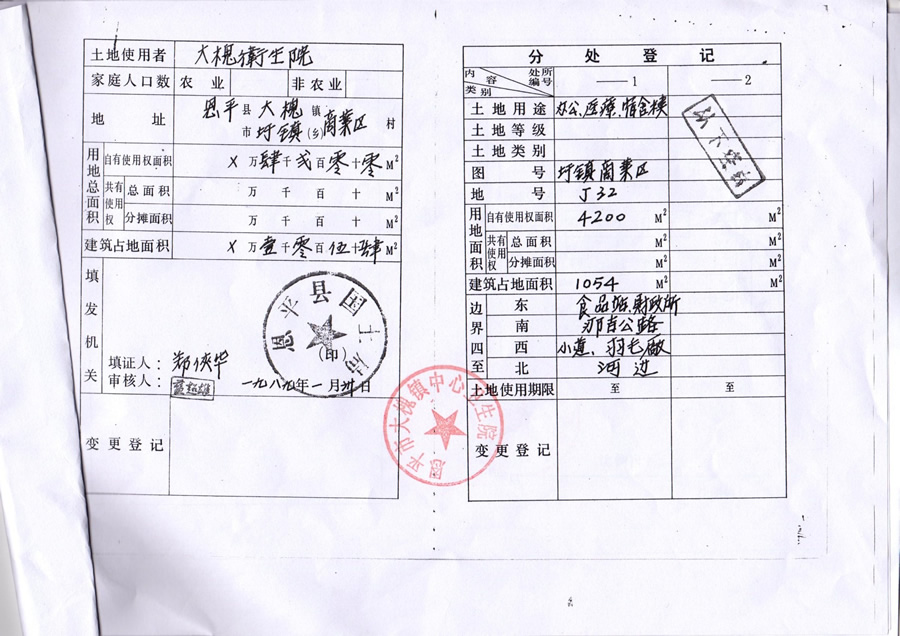 土地使用者 大槐衛生院
家庭人口数 农业 非农业
地址 恩平县 大槐镇
市 圩镇(乡) 商業区 村
用地总面积
自有使用权面积 X万肆千贰百零十零M²
共有使用权 总面积 万千百十M²
分摊面积 万千百十M²
建筑占地面积 X万壹千零百伍十肆M²
填发机关
恩平县国土局
(印)
填证人:
审核人:
一九八九年一月卅日
变更登记
恩平市大槐镇中心卫生院
分处登记
内容 处所编号 类别 ——1 ——2
土地用途 办公、医療、宿舍楼
以下空白
土地等级
土地类别
图号 圩镇商業区
地号 J32
用地面积
自有使用权面积 4200 M² M²
共有使用权 总面积 M² M²
分摊面积 M² M²
建筑占地面积 1054 M² M²
边界四至
东 食品站、财政所
南 公路
西 小道、羽毛廠
北 河边
土地使用期限 至 至
变更登记